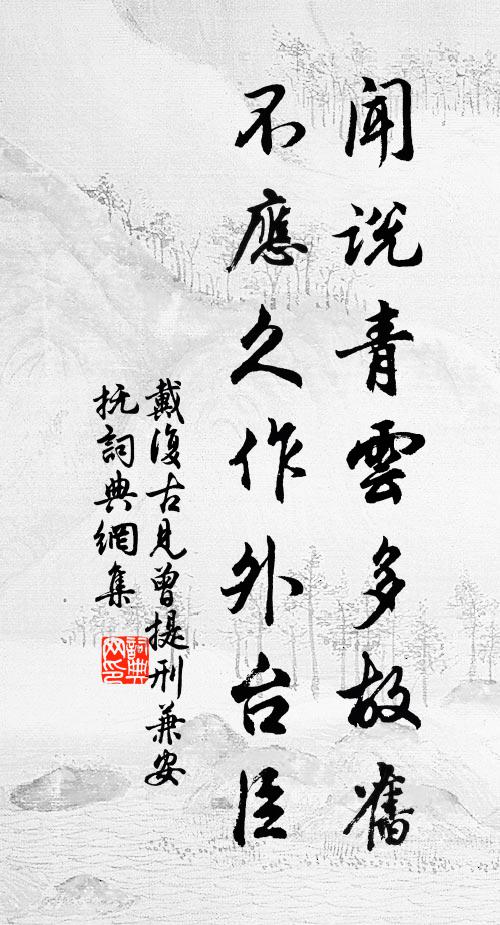 闻说青雲多故舊
不應久作外台臣
戴復古見曾提刑兼安
抚詞典網集
詞典網印